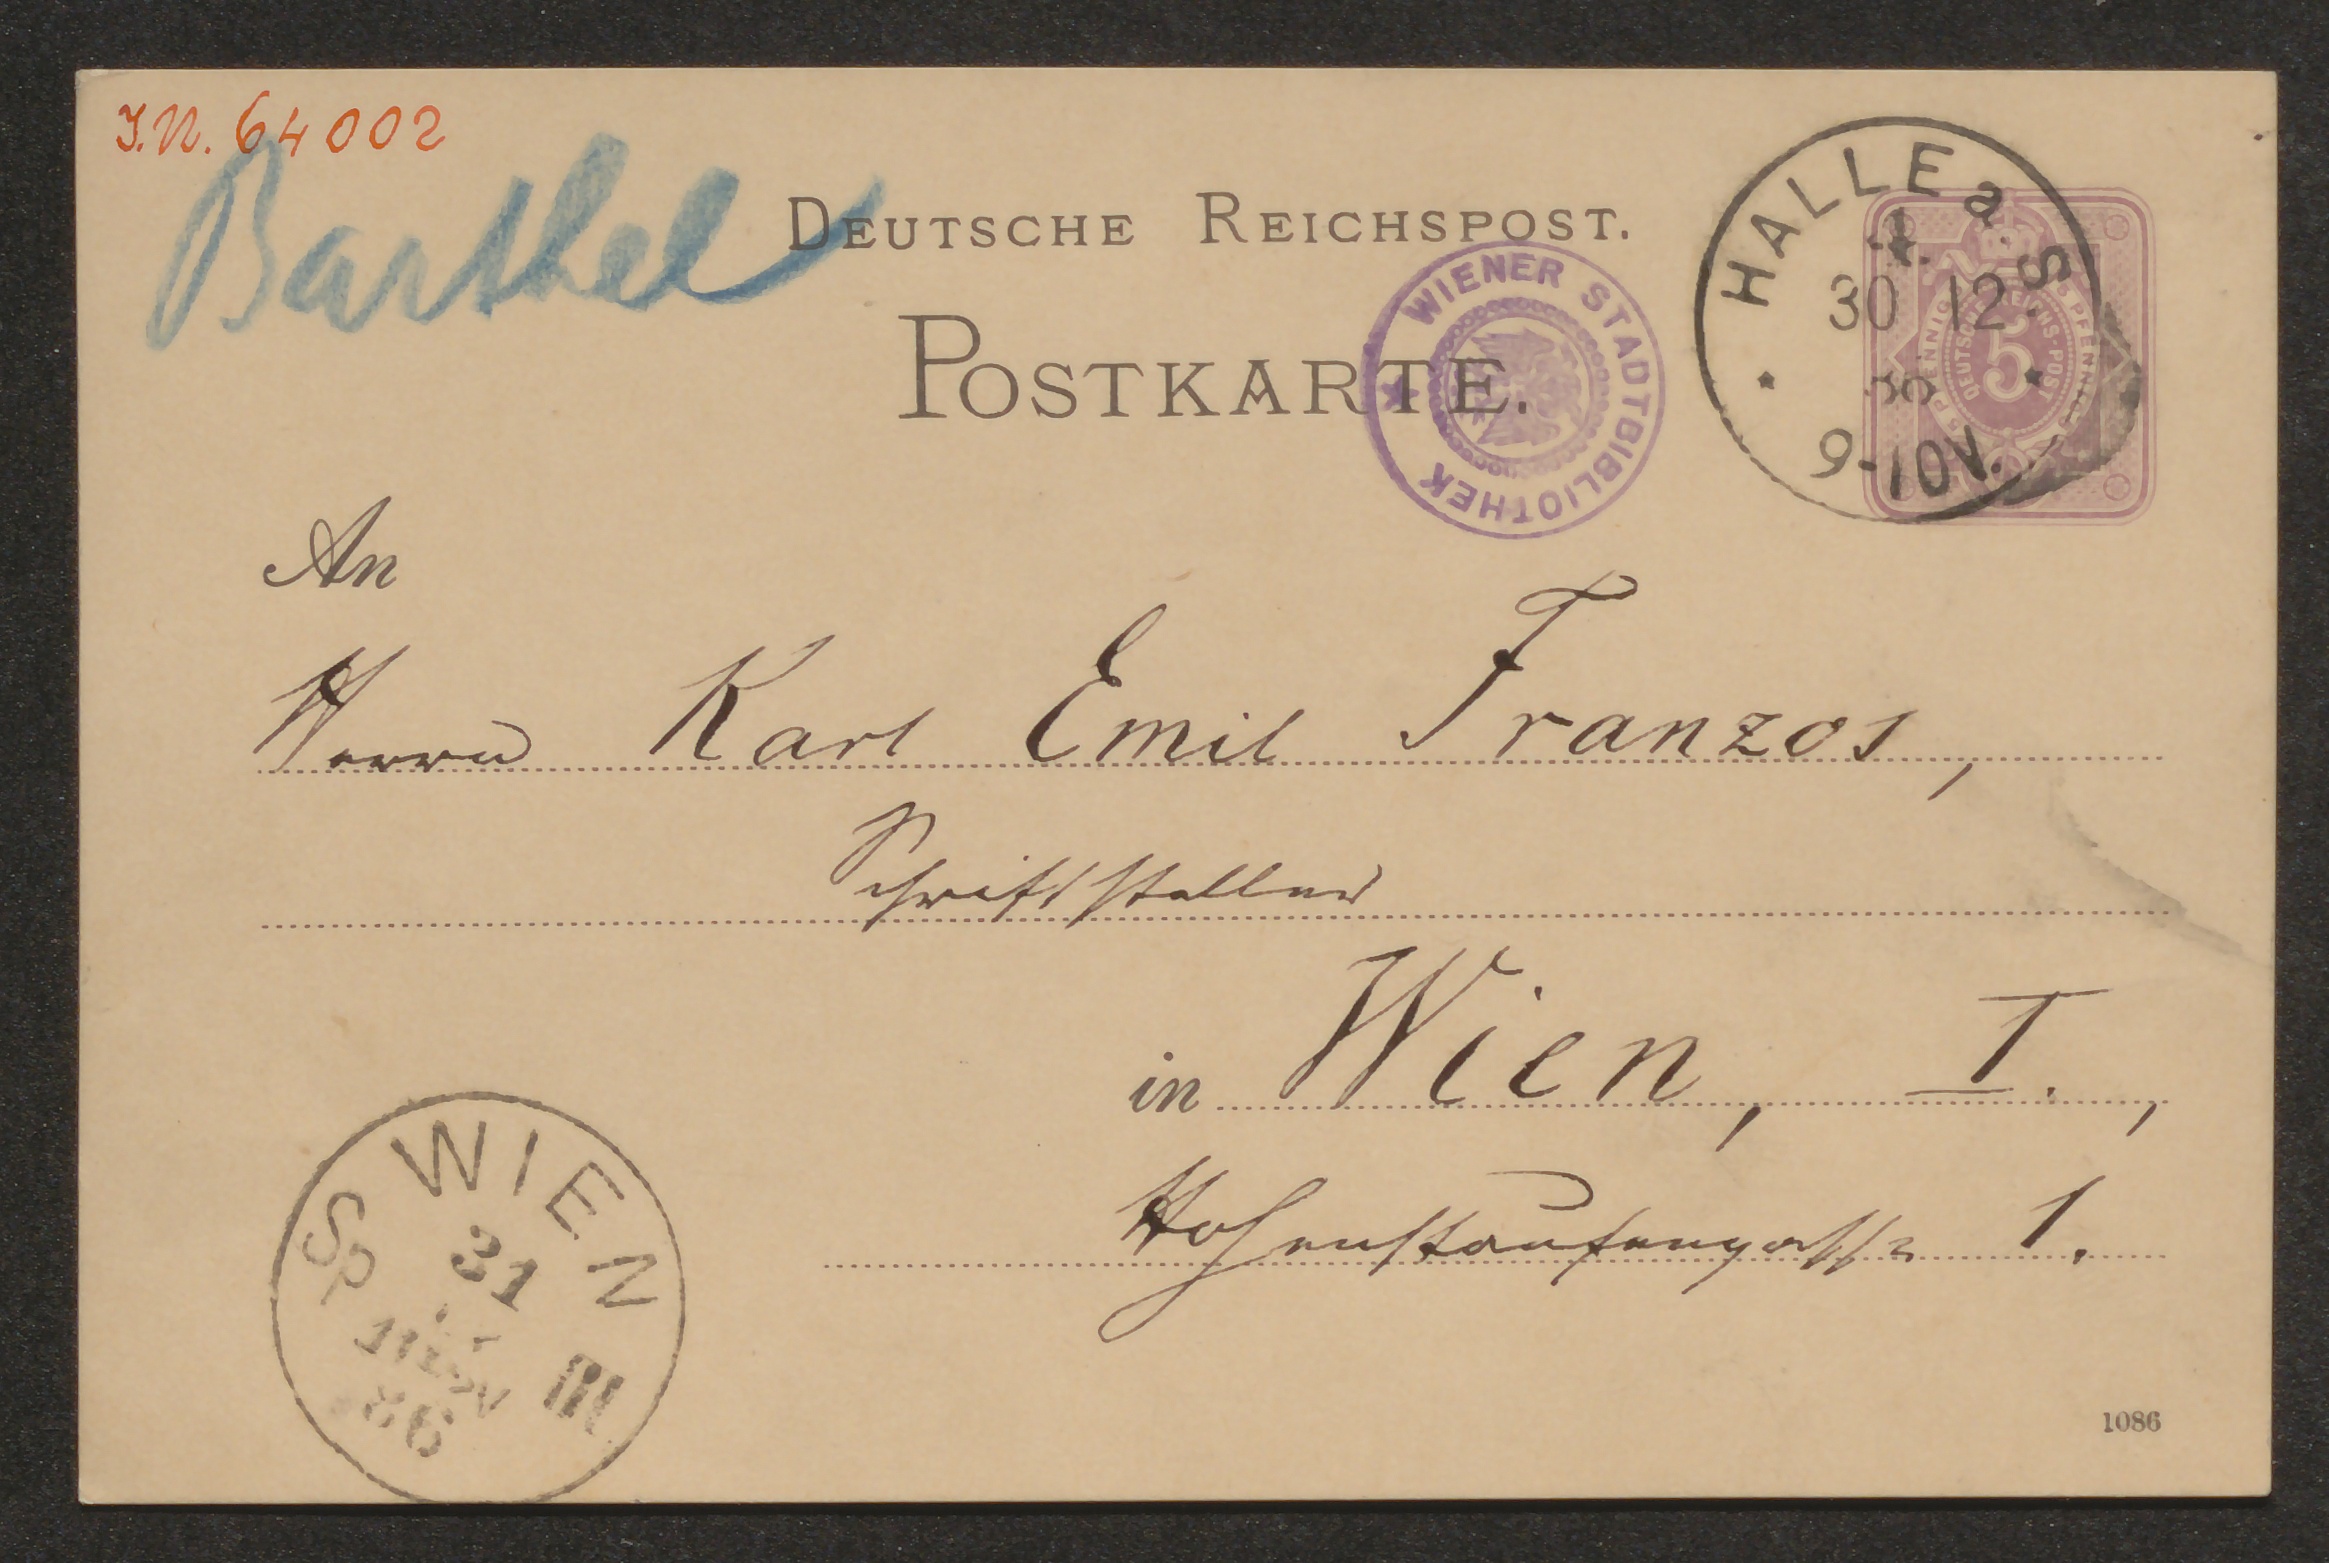 J.N. 64002
Barthel
DEUTSCHE REICHSPOST.
POSTKARTE.
WIENER STADTBIBLIOTHEK
HALLE a S.
30 12
9-10V.
5 PFENNIG
DEUTSCHE REICHS-POST
5
An
Herrn Karl Emil Franzos,
Schriftsteller
in Wien, I.,
Hohenstaufengasse 1.
WIEN III
31
86
1086